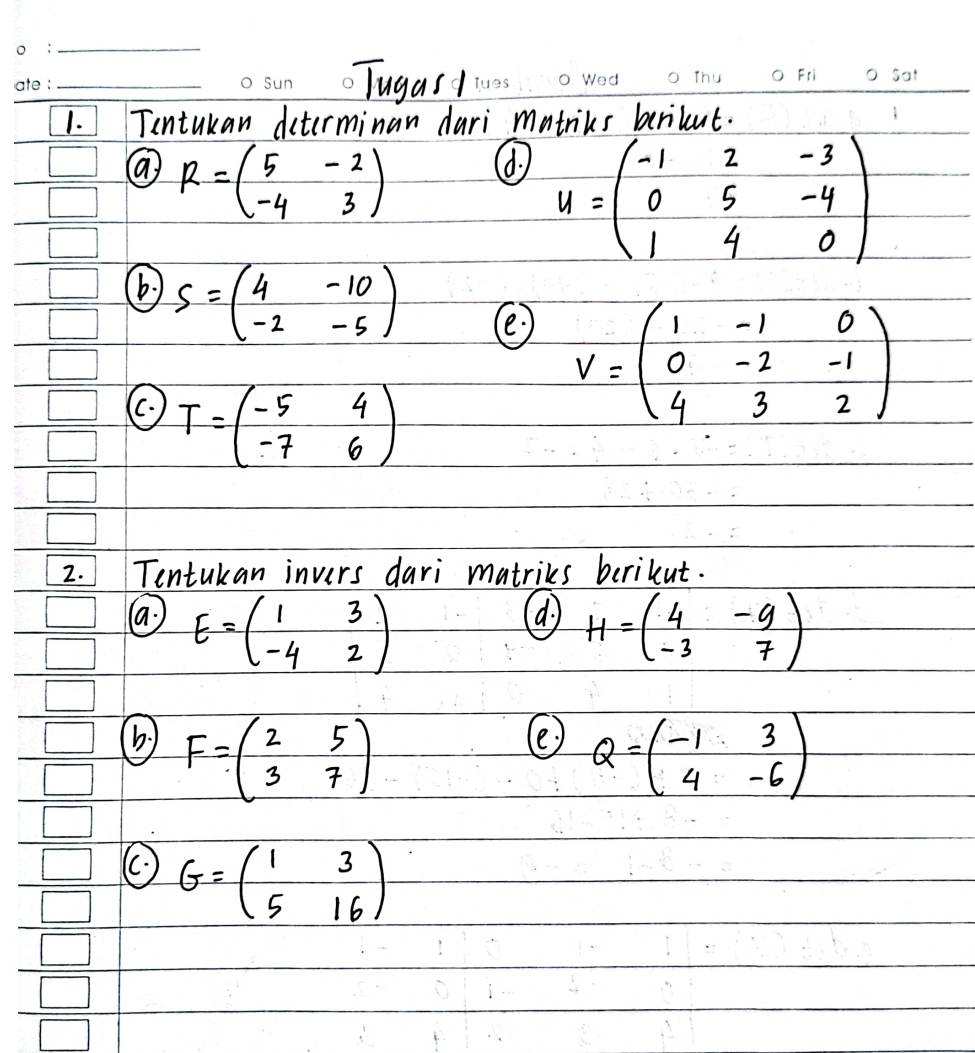 o :
ate :
o Sun o Tues o Wed o Thu o Fri o Sat
Tugas 1
1. Tentukan determinan dari matriks berikut.
a. R = ( 5 -2
-4 3 )
d. U = ( -1 2 -3
0 5 -4
1 4 0 )
b. S = ( 4 -10
-2 -5 )
e. V = ( 1 -1 0
0 -2 -1
4 3 2 )
c. T = ( -5 4
-7 6 )
2. Tentukan invers dari matriks berikut.
a. E = ( 1 3
-4 2 )
d. H = ( 4 -9
-3 7 )
b. F = ( 2 5
3 7 )
e. Q = ( -1 3
4 -6 )
c. G = ( 1 3
5 16 )